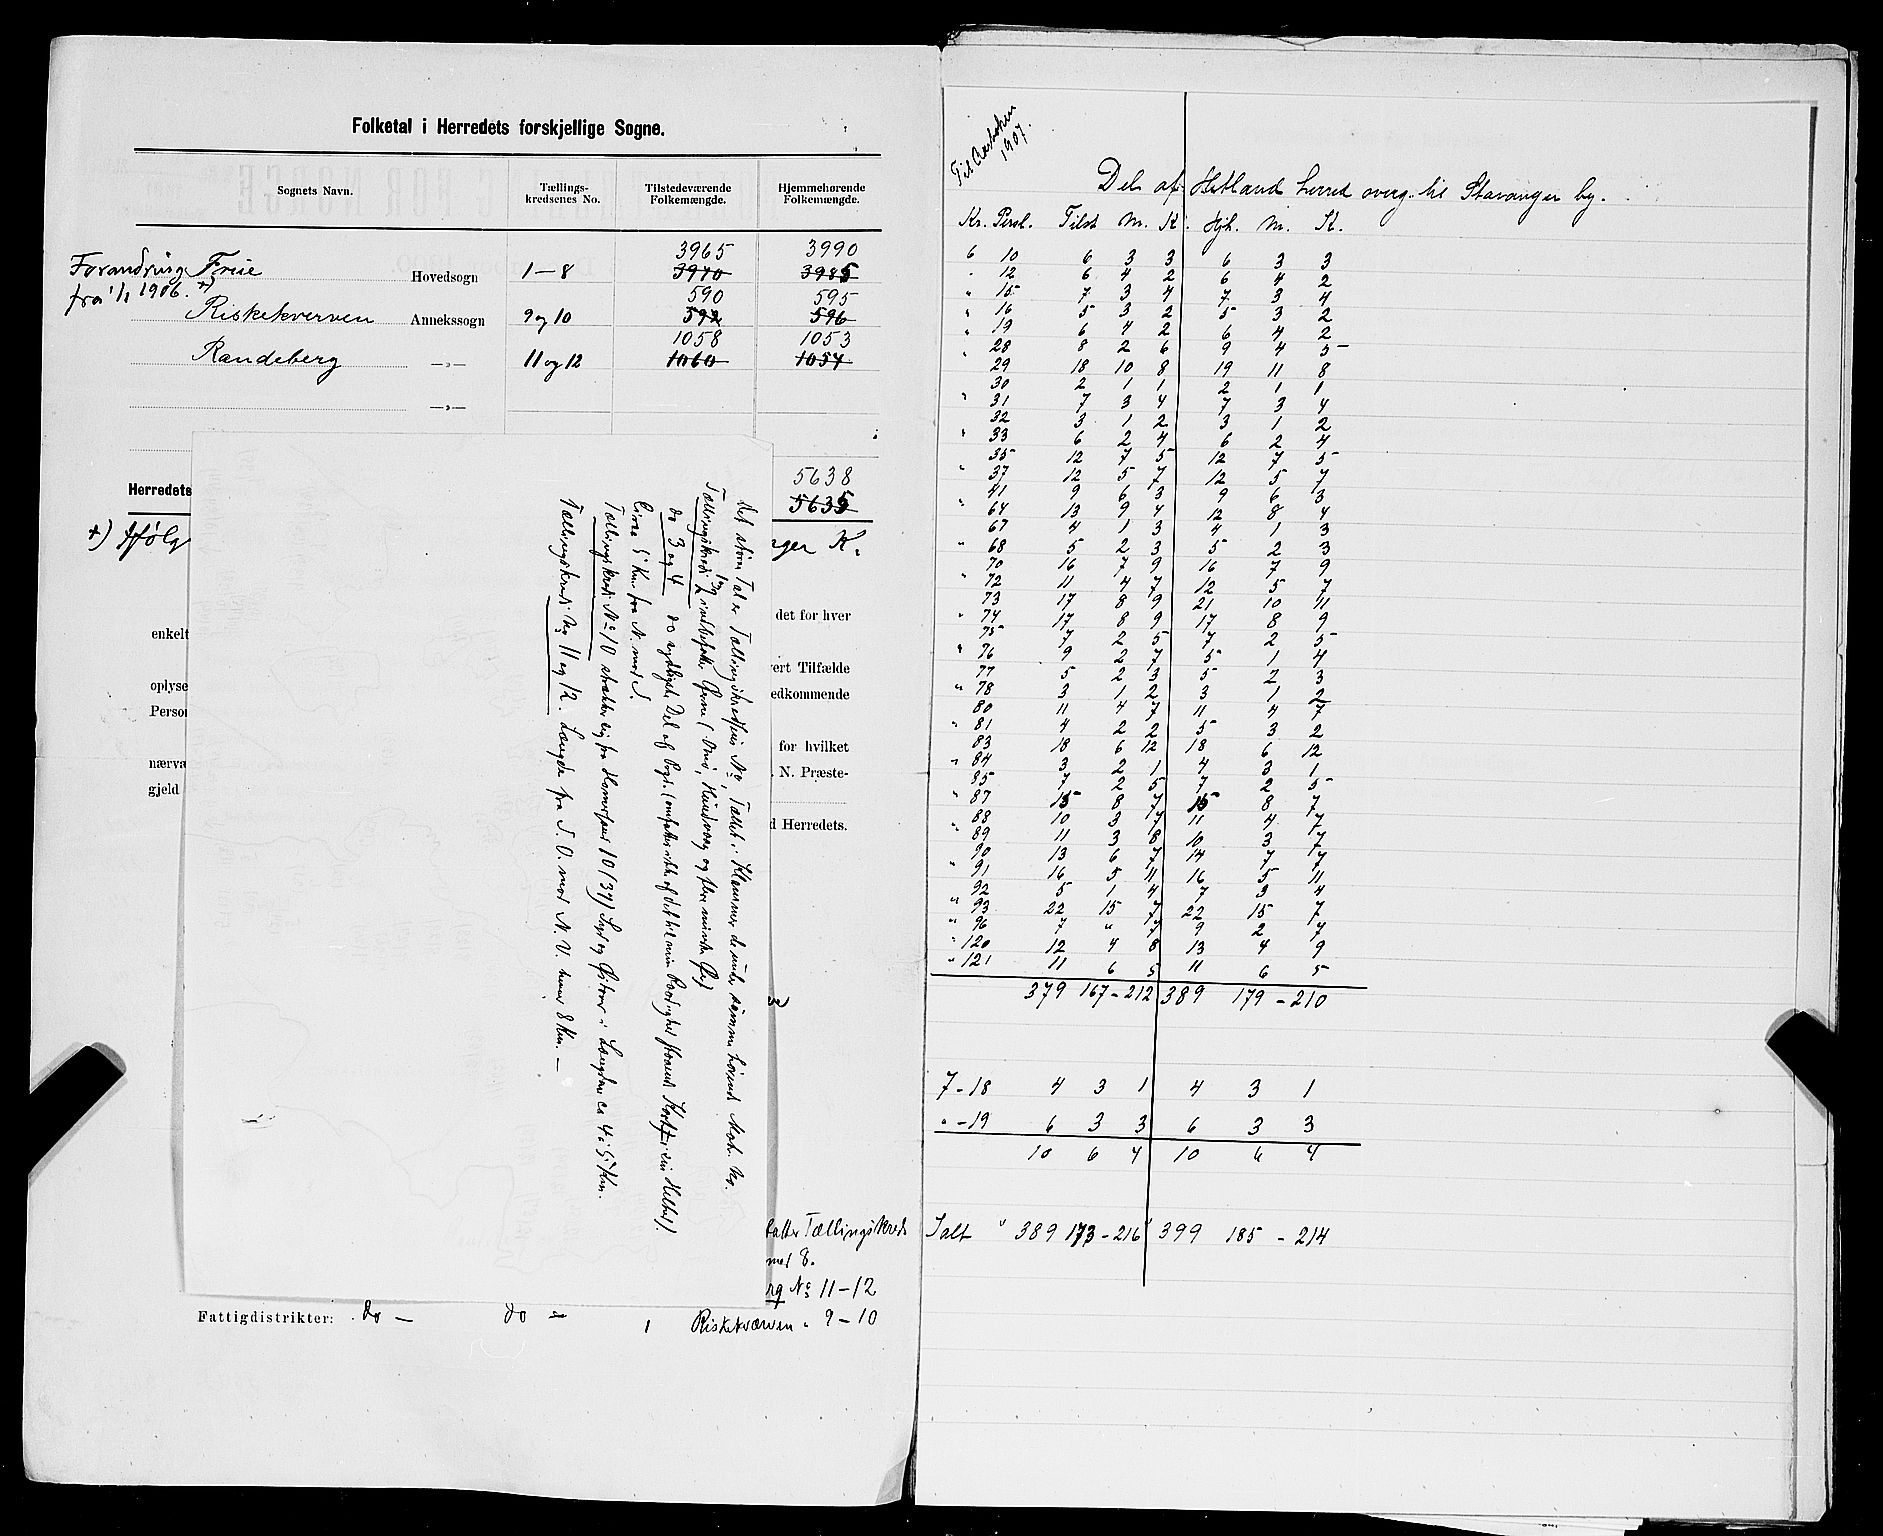 Folketal i Herredets forskjellige Sogne.
Sognets Navn.
Tællings-
kredsenes No.
Tilstedeværende
Folkemængde.
Hjemmehørende
Folkemængde.
3965 3990
Forandring Frue Hovedsogn 1–8 3970 3985
fra 1/1 1906. +)
590 595
Riskekverven Annekssogn 9 og 10 592 596
1058 1053
Randeberg —„— 11 og 12 1060 1054
—„—
5638
Herredets 5635
+) Ifølg nger K.
det for hver
enkelt
vert Tilfælde
oplyse edkommende
Person
for hvilket
nærvæ . N. Præste-
gjeld
d Herredets.
det store Tal er Tællingskredsens No, Tallet i Klammer de under samme hørende Mat. No.
Tællingskreds 1 og 2 indbefatter Øerne (Omø, Hundvaag og flere mindre Øer)
do 3 og 4 do sydligste Del af Sogn.
Circa 5 Km. fra N. mod S.
Tællingskreds No 10 strækker sig fra Hamersæns 10 (37) Syd og Østover i Længden ca 4 à 5 Km.
Tællingskreds No 11 og 12. Længde fra S. O. mod N. V. knas 8 Km. —
fatter Tællingskreds
med 8.
rg No 11–12
Fattigdistrikter: do — do — Riskekværven „ 9–10
Til Aarboken
1907.
Del af Hetland herred overg. til Stavanger by.
Kr. Persl. Tilst M. K. Hjh. M. K.
6 10 6 3 3 6 3 3
" 12 6 4 2 6 4 2
" 15 7 3 4 7 3 4
" 16 5 3 2 5 3 2
" 19 6 4 2 6 4 2
" 28 8 2 6 9 4 5
29 18 10 8 19 11 8
30 2 1 1 2 1 1
" 31 7 3 4 7 3 4
32 3 1 2 3 1 2
" 33 6 2 4 6 2 4
35 12 7 5 12 7 5
" 37 12 5 7 12 5 7
41 9 6 3 9 6 3
" 64 13 9 4 12 8 4
67 4 1 3 4 1 3
" 68 5 2 3 5 2 3
70 16 7 9 16 7 9
" 72 11 4 7 12 5 7
73 17 8 9 21 10 11
" 74 17 8 9 17 8 9
75 7 2 5 7 2 5
" 76 9 2 7 5 1 4
77 5 2 3 5 2 3
" 78 3 1 2 3 1 2
80 11 4 7 11 4 7
" 81 4 2 2 5 3 2
83 18 6 12 18 6 12
" 84 3 2 1 4 3 1
85 7 2 5 7 2 5
" 87 15 8 7 15 8 7
88 10 3 7 11 4 7
" 89 11 3 8 10 3 7
90 13 6 7 14 7 7
" 91 16 5 11 16 5 11
92 5 1 4 7 3 4
" 93 22 15 7 22 15 7
" 96 7 " 7 9 2 7
" 120 12 4 8 13 4 9
" 121 11 6 5 11 6 5
379 167 – 212 389 179 – 210
7 – 18 4 3 1 4 3 1
" – 19 6 3 3 6 3 3
10 6 4 10 6 4
Ialt " 389 173 – 216 399 185 – 214